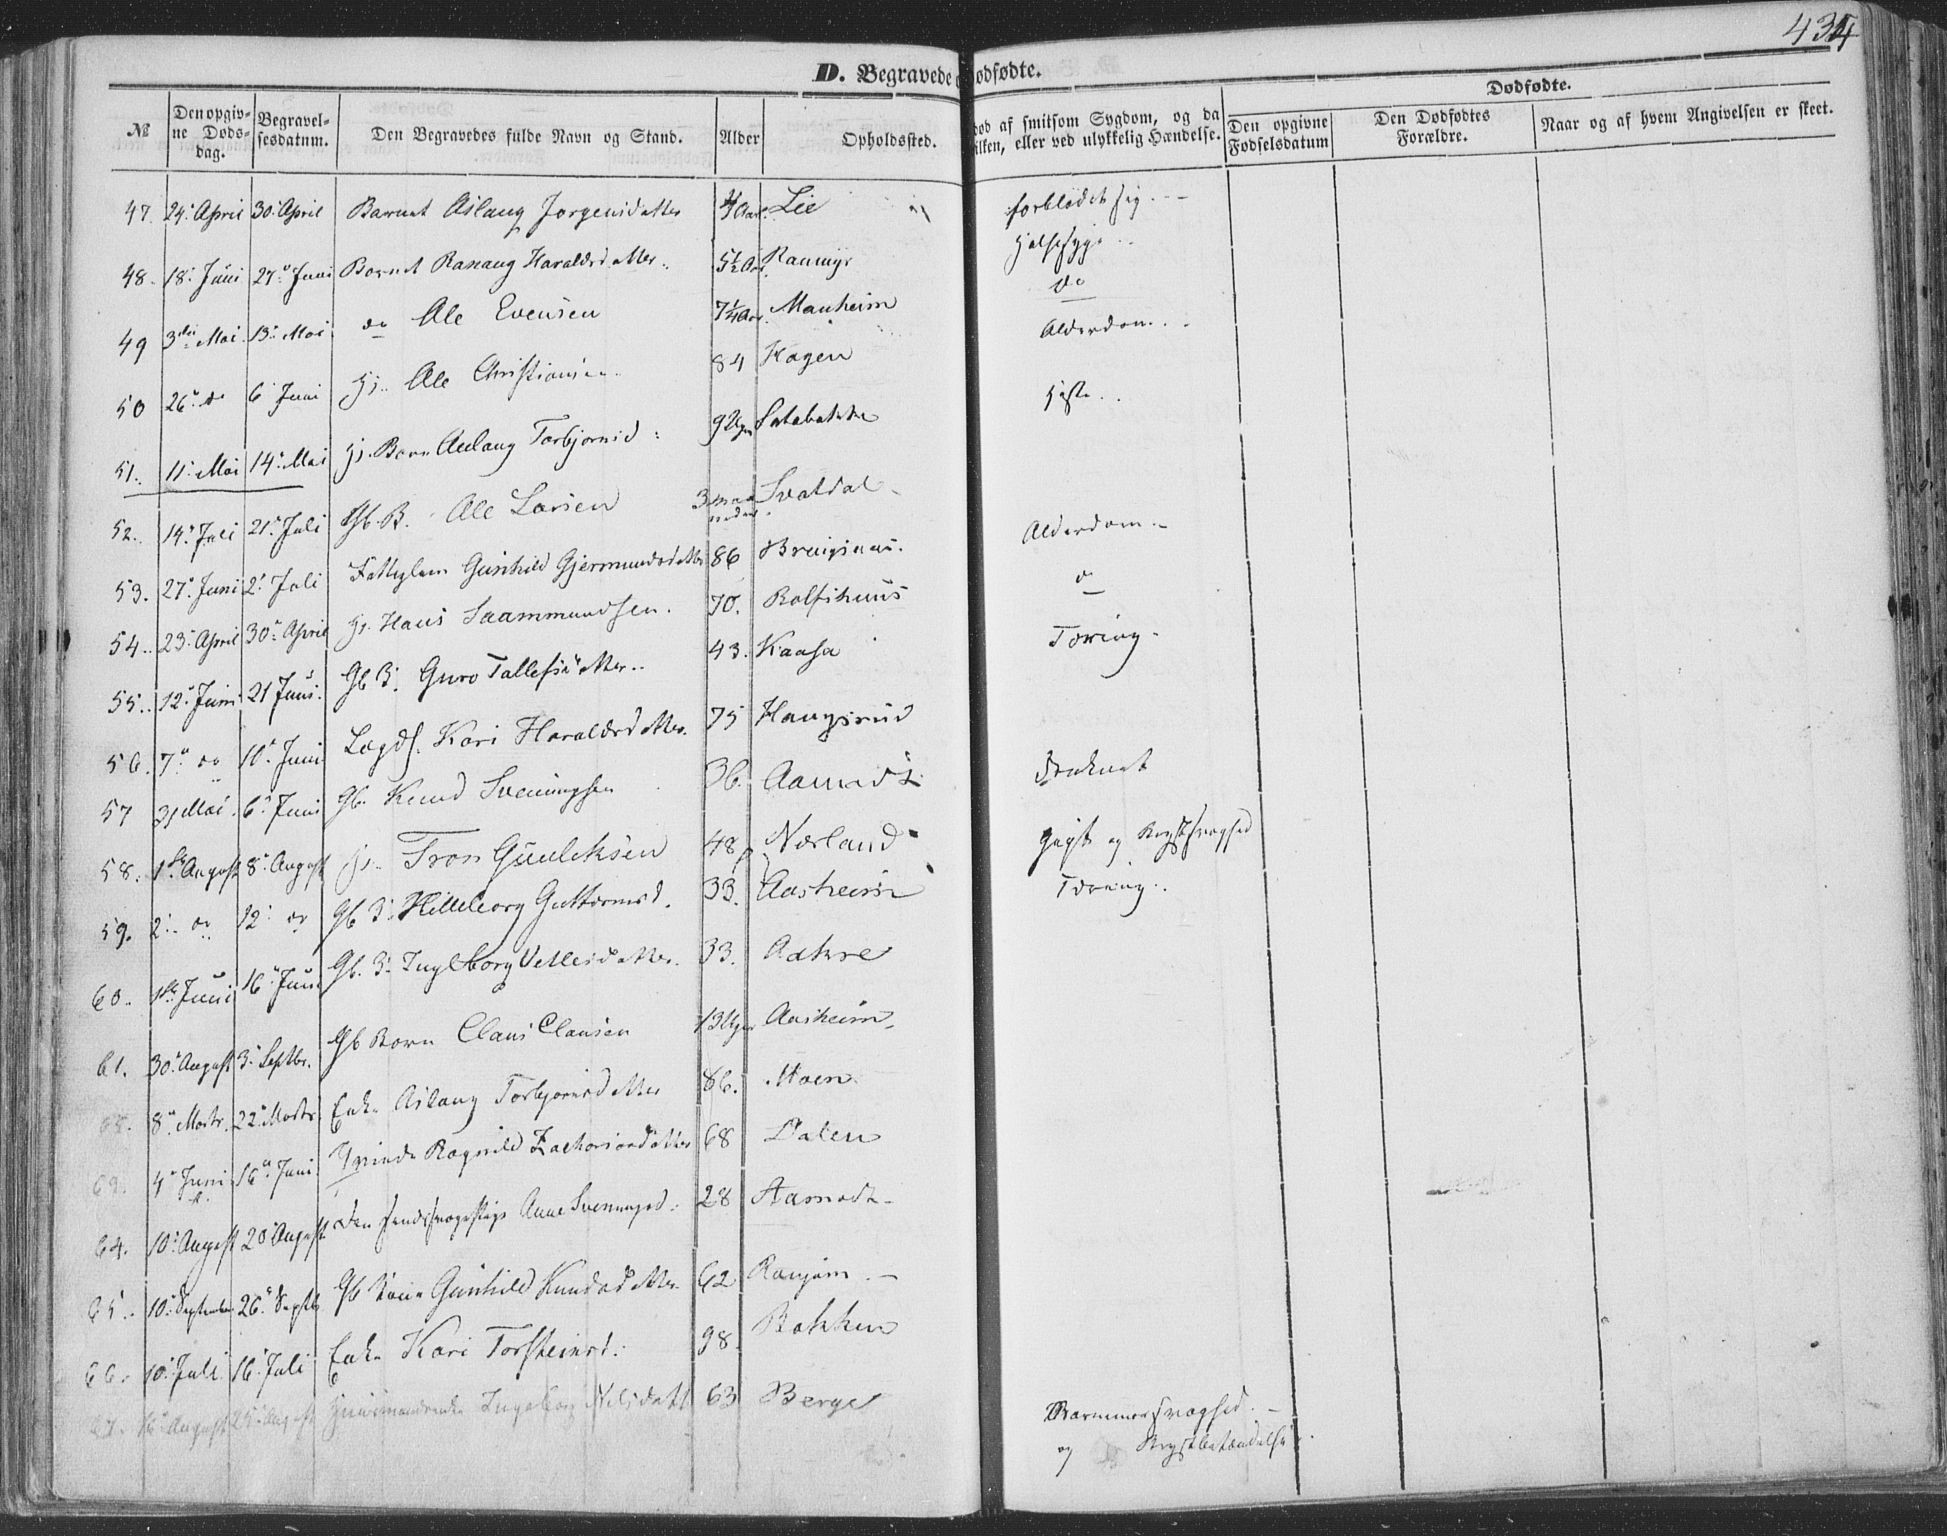 434
D. Begravede Dødfødte.
№ Den opgivne Døds-dag. Begravelsesdatum. Den Begravedes fulde Navn og Stand. Alder Opholdssted. død af smitsom Sygdom, og da hvilken, eller ved ulykkelig Hændelse. Dødfødte.
Den opgivne Fødselsdatum Den Dødfødtes Forældre. Naar og af hvem Angivelsen er skeet.
47. 24. April 30. April Barnet Aslaug Jørgensdatter Aar. Lie forblødet sig.
48. 18. Juni 27. Juni Barnet Ranaug Haraldsdatter. 5½ Aar. Ranmyr Halssyge
49 3die Mai. 13. Mai do Ole Evensen 7¼ Aar. Manheim do
50 26. do 6 Juni Hs. Ole Christiansen 84 Hagen Alderdom.
51. 11. Mai 14. Mai Hs. Barn Aslaug Torbjørnsd: 9 Uger
52. 14. Juli 21. Juli Gb. B. Ole Larsen 3 maaneder. Svatdal
53. 27. Juni 2. Juli Fattiglem Gunhild Gjermundsdatter 86 Alderdom
54. 23. April 30. April Hs. Hans Saammundsen. 70. Rolfshuus do
55. 12. Juni 21 Juni. Gb Guro Tallefsdatter.. 43. Kaasa Tæring.
56. 7. do 10. Juni Lægds. Kari Haraldsdatter. 75 Haugsrud
57 31 Mai. 6. Juni Gb. Knud Sveningsen 36. Aamodt druknet
58. 1ste August 8. August Hs. Tron Gunleksen 48 Nærland Gigt og Brystsvaghed
59. 2. do 12. do Gb Hilleborg Guttormsd. 33. Aasheim Tæring.
60. 1ste Juni 16. Juni Gb. Ingeborg Vetlesdatter. 33. Aakre
61. 30. August 3. Septbr. Gb Barn Claus Clausen 13 Uger Aasheim.
8. Marts. 22. Marts Enke Aslaug Torbjørnsdatter 86. Moen.
4. Juni 16. Juni Qvinde Ragnild Zachariasdatter 68 Dalen
64. 10. August 20 August Den sindssvage Pige Anne Sveningsd. 28 Aamodt
65. 10. September 26. Septbr Gb Kone Gunhild Knudsdatter 62
66. 10. Juli 16. Juli Enke Kari Torsteinsd. 98. Bakken
67. 16. August 25. August Huusmandsenke Ingeborg Nilsdatt 63 Berge svaghed.
og Brystbetændelse.